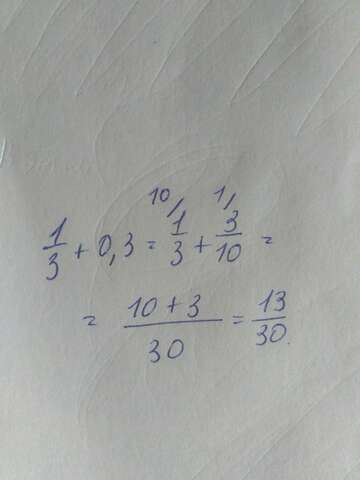 1/3 + 0,3 = 10/ 1/3 + 1/ 3/10 =
= 10 + 3/30 = 13/30.